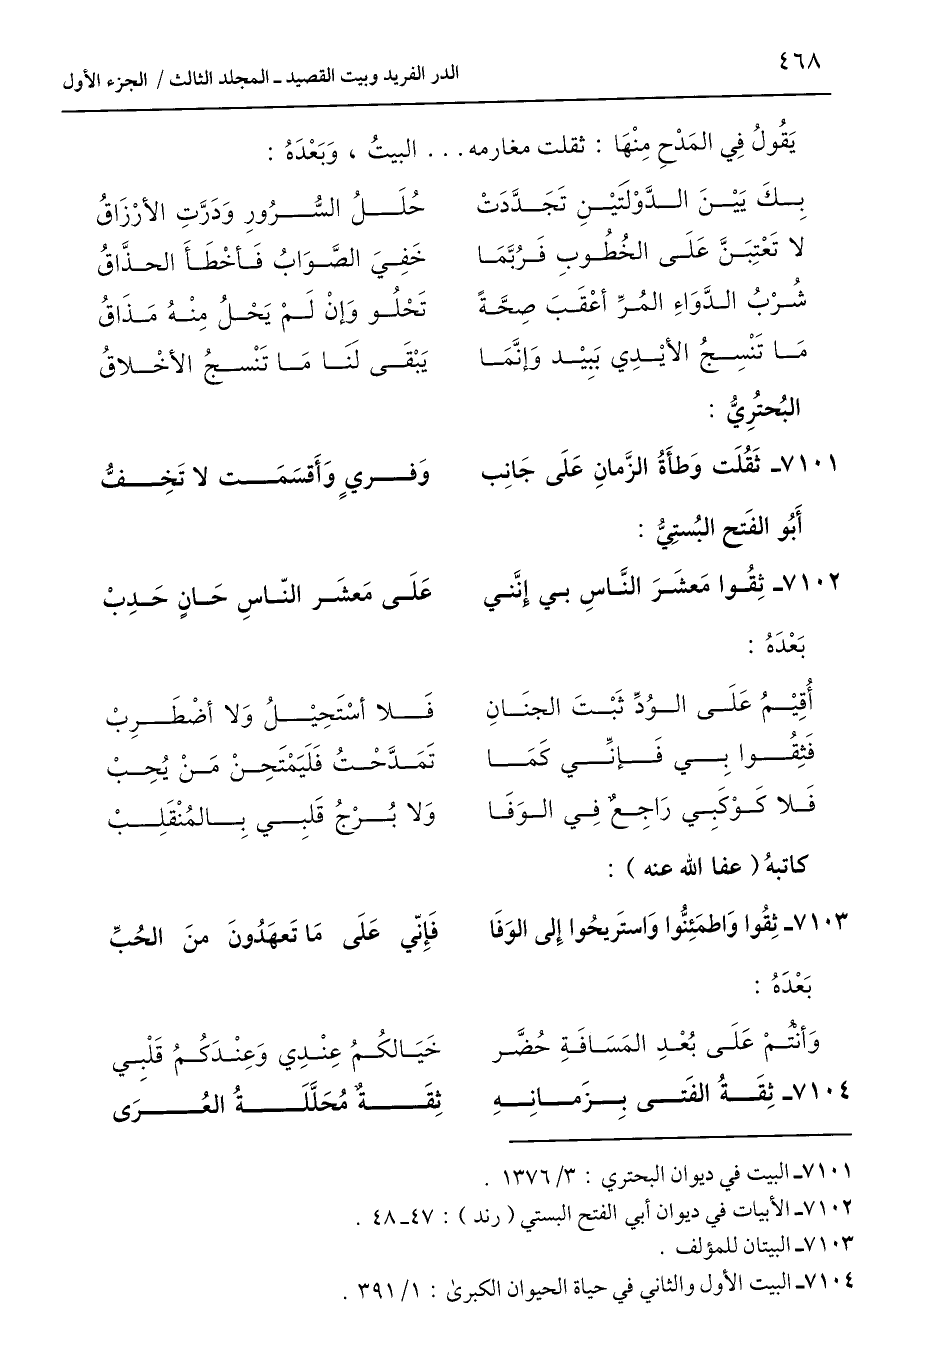 ٤٦٨
الدر الفريد وبيت القصيد ـ المجلد الثالث / الجزء الأول
يَقُولُ فِي المَدْحِ مِنْهَا : ثقلت مغارمه . . . البيتُ ، وَبَعْدَهُ :
بِـكَ بَيْـنَ الـدَّوْلَتَيْـنِ تَجَـدَّدَتْ حُلَـلُ السُّـرُورِ وَدَرَّتِ الأرْزَاقُ
لا تَعْتِبَـنَّ عَلَـى الخُطُـوبِ فَـرُبَّمَـا خَفِـيَ الصَّـوَابُ فَـأخْطَـأَ الحـذَّاقُ
شُـرْبُ الـدَّوَاءِ المُـرِّ أعْقَـبَ صِحَّـةً تَحْلُـو وَإنْ لَـمْ يَحْـلُ مِنْـهُ مَـذَاقُ
مَـا تَنْسِـجُ الأيْـدِي يَبِيْـد وَإنَّمَـا يَبْقَـى لَنَـا مَـا تَنْسـجُ الأخْـلاقُ
البُحتُرِيُّ :
٧١٠١ـ ثَقُلَت وَطأَةُ الزَّمانِ عَلَى جَانِب وَفـرِي وَأَقسَمَـت لا تَخِـفُّ
أَبُو الفَتح البُستِيُّ :
٧١٠٢ـ ثِقُـوا مَعشَرَ النَّاسِ بـي إِنَّنـي عَلَـى مَعشَـر النّـاسِ حَـانٍ حَـدِبْ
بَعْدَهُ :
أُقِيْـمُ عَلَـى الـوُدِّ ثَبْـتَ الجنَـانِ فَـلا أسْتَحِيْـلُ وَلا أضْطَـرِبْ
فَثِقُـوا بِـي فَـإنِّـي كَمَـا تَمَـدَّحْـتُ فَلْيَمْتَحِـنْ مَـنْ يُحِـبْ
فَـلا كَـوْكَبِـي رَاجِـعٌ فِـي الـوَفَـا وَلا بُـرْجُ قَلْبِـي بِـالمُنْقَلِـبْ
كاتبهُ ( عفا الله عنه ) :
٧١٠٣ـ ثِقُوا وَاطمَئِنُّوا وَاستَرِيحُوا إلى الوَفَا فَإِنّي عَلَى مَا تَعهَدُونَ منَ الحُبِّ
بَعْدَهُ :
وَأنْتُـمْ عَلَـى بُعْـدِ المَسَـافَـةِ حُضَّـر خَيَـالكُـمُ عِنْـدِي وَعِنْـدَكُـمُ قَلْبِـي
٧١٠٤ـ ثِقَـةُ الفَتَـى بِـزَمـانِـهِ ثِقَـةٌ مُحَلَّلَـةُ العُـرَى
٧١٠١ـ البيت في ديوان البحتري : ٣/ ١٣٧٦ .
٧١٠٢ـ الأبيات في ديوان أبي الفتح البستي ( رند ) : ٤٧ـ٤٨ .
٧١٠٣ـ البيتان للمؤلف .
٧١٠٤ـ البيت الأول والثاني في حياة الحيوان الكبرىٰ : ١/ ٣٩١ .